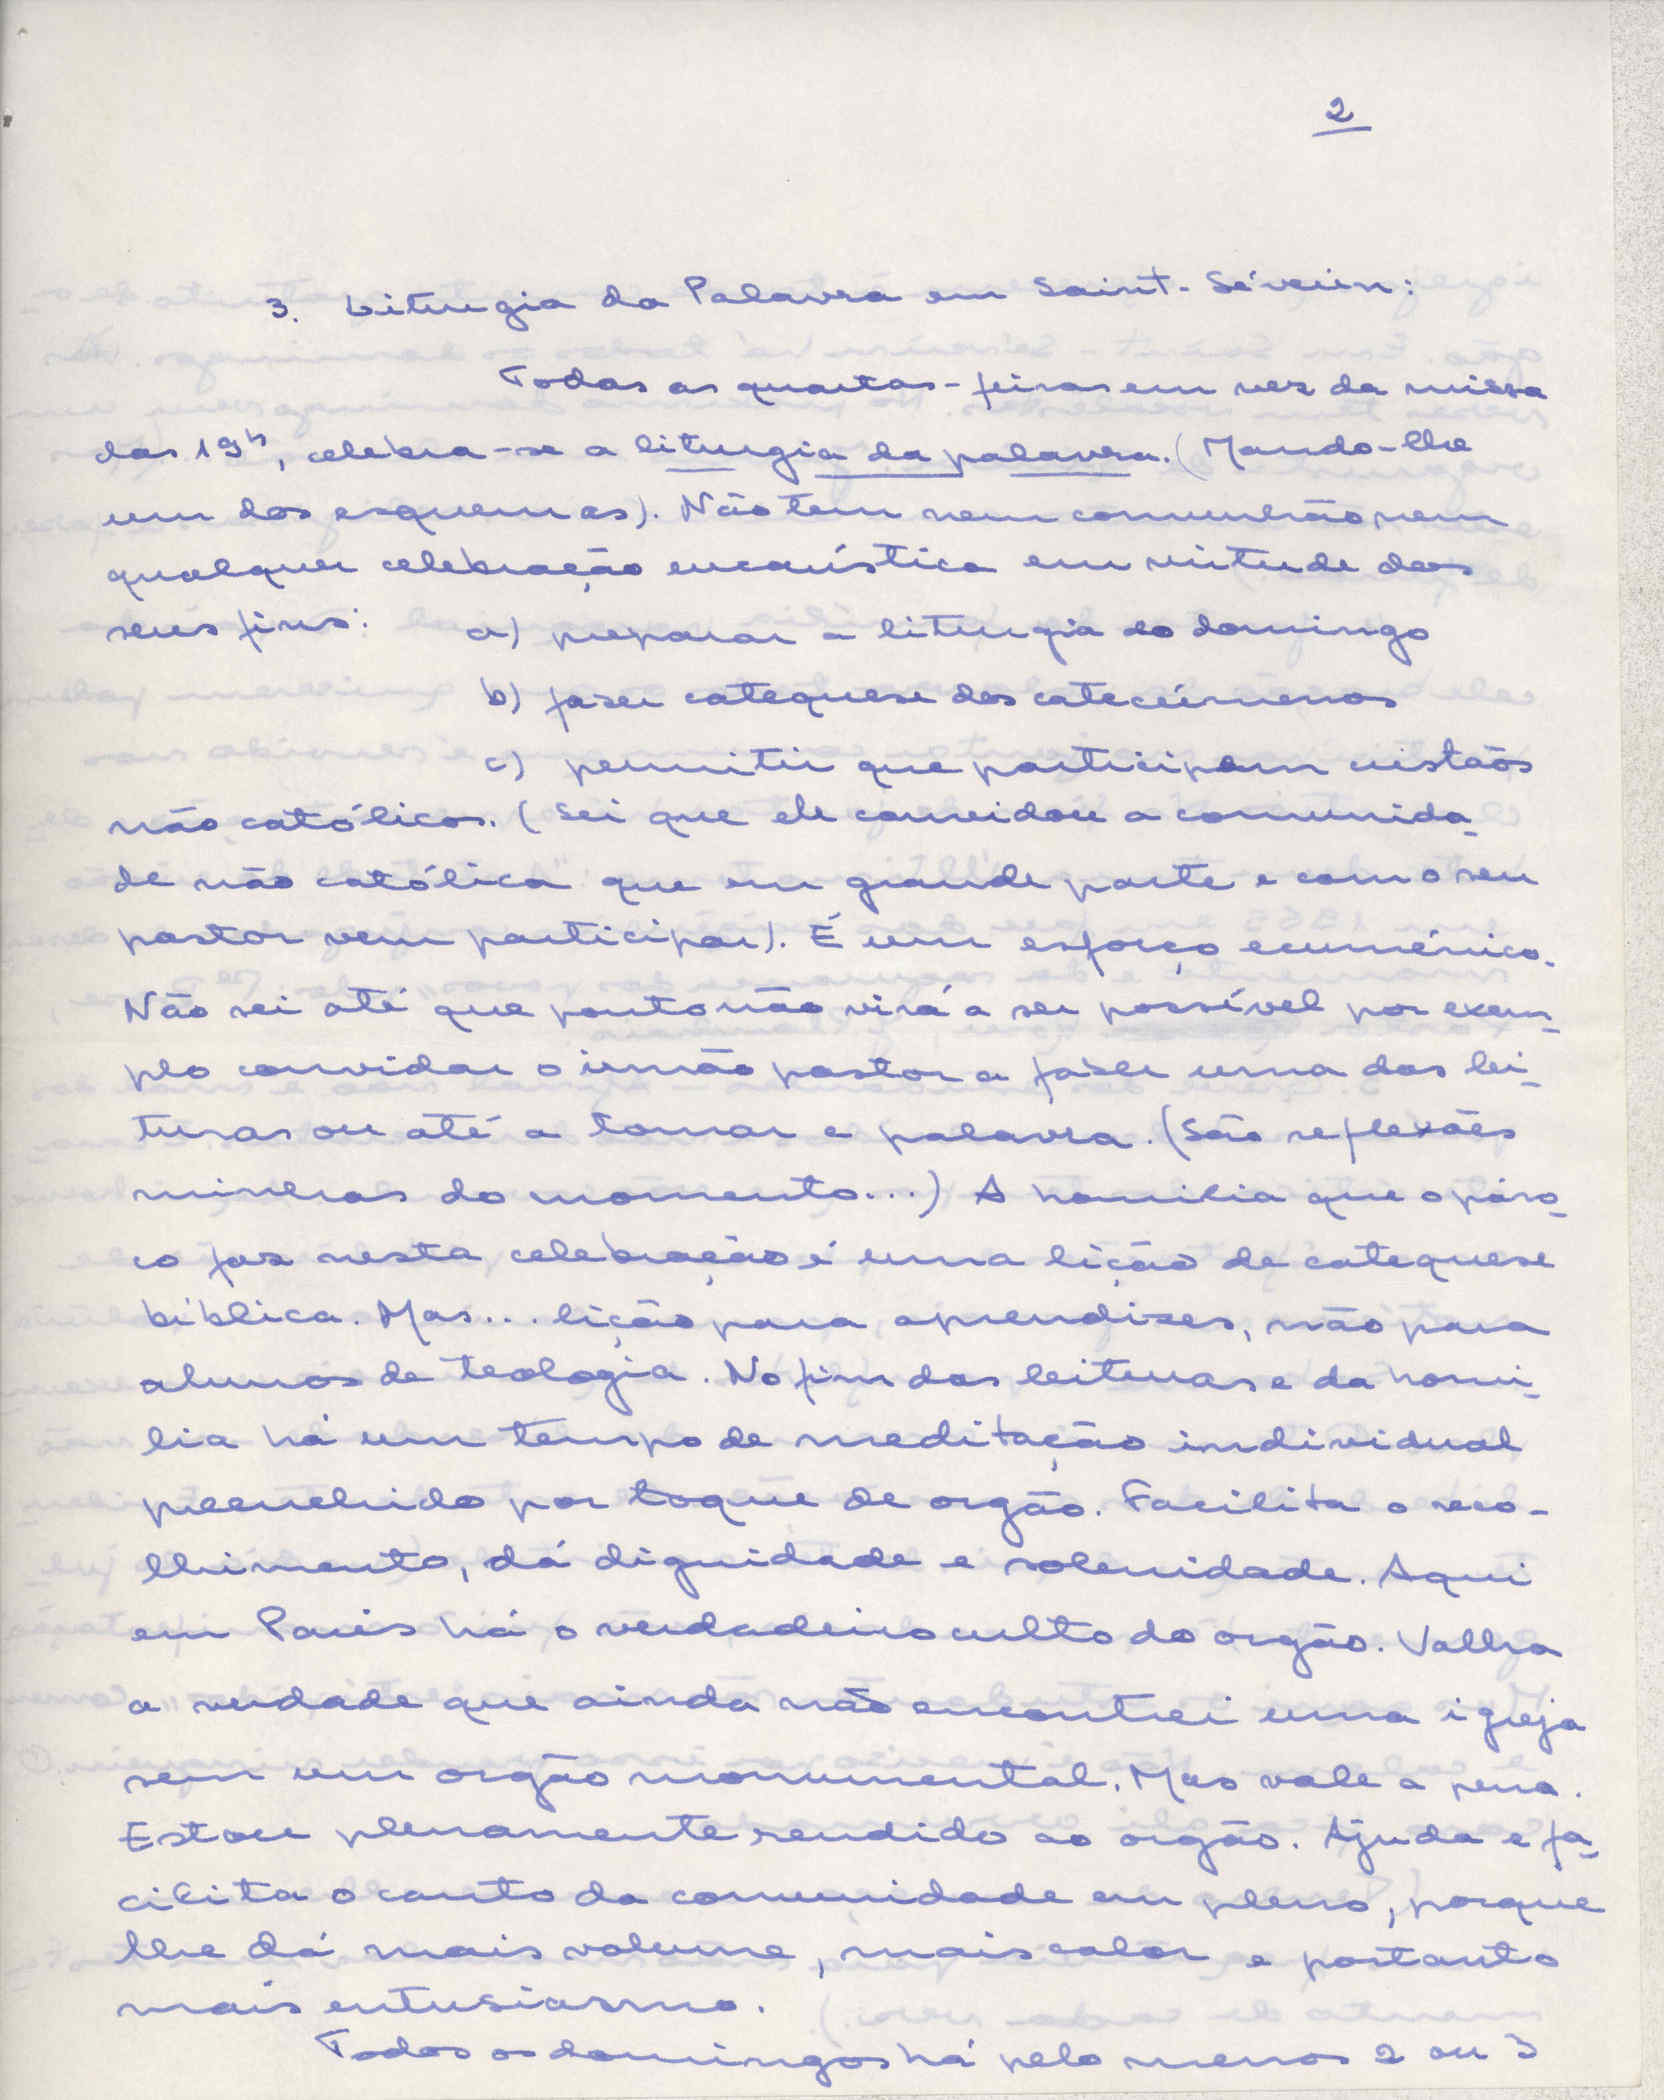 2
3. Liturgia da Palavra em Saint-Séverin:
Todas as quartas-feiras em vez da missa
das 19h, celebra-se a liturgia da palavra. (Mando-lhe
um dos esquemas). Não tem nem comunhão nem
qualquer celebração eucarística em virtude dos
seus fins: a) preparar a liturgia do domingo
b) fazer catequese dos catecúmenos
c) permitir que participem cristãos
não católicos. (Sei que ele convidou a comunida-
de não católica que em grande parte e com o seu
pastor vem participar). É um esforço ecuménico.
Não sei até que ponto não virá a ser possível por exem-
plo convidar o irmão pastor a fazer uma das lei-
turas ou até a tomar a palavra. (São reflexões
minhas do momento...) A homilia que o páro-
co faz nesta celebração é uma lição de catequese
bíblica. Mas... lição para aprendizes, não para
alunos de teologia. No fim das leituras e da homi-
lia há um tempo de meditação individual
preenchido por toque de orgão. Facilita o reco-
lhimento, dá dignidade e solenidade. Aqui
em Paris há o verdadeiro culto do orgão. Valha
a verdade que ainda não encontrei uma igreja
sem um orgão monumental. Mas vale a pena.
Estou plenamente rendido ao orgão. Ajuda e fa-
cilita o canto da comunidade em pleno, porque
lhe dá mais volume, mais calor e portanto
mais entusiasmo.
Todos os domingos há pelo menos 2 ou 3